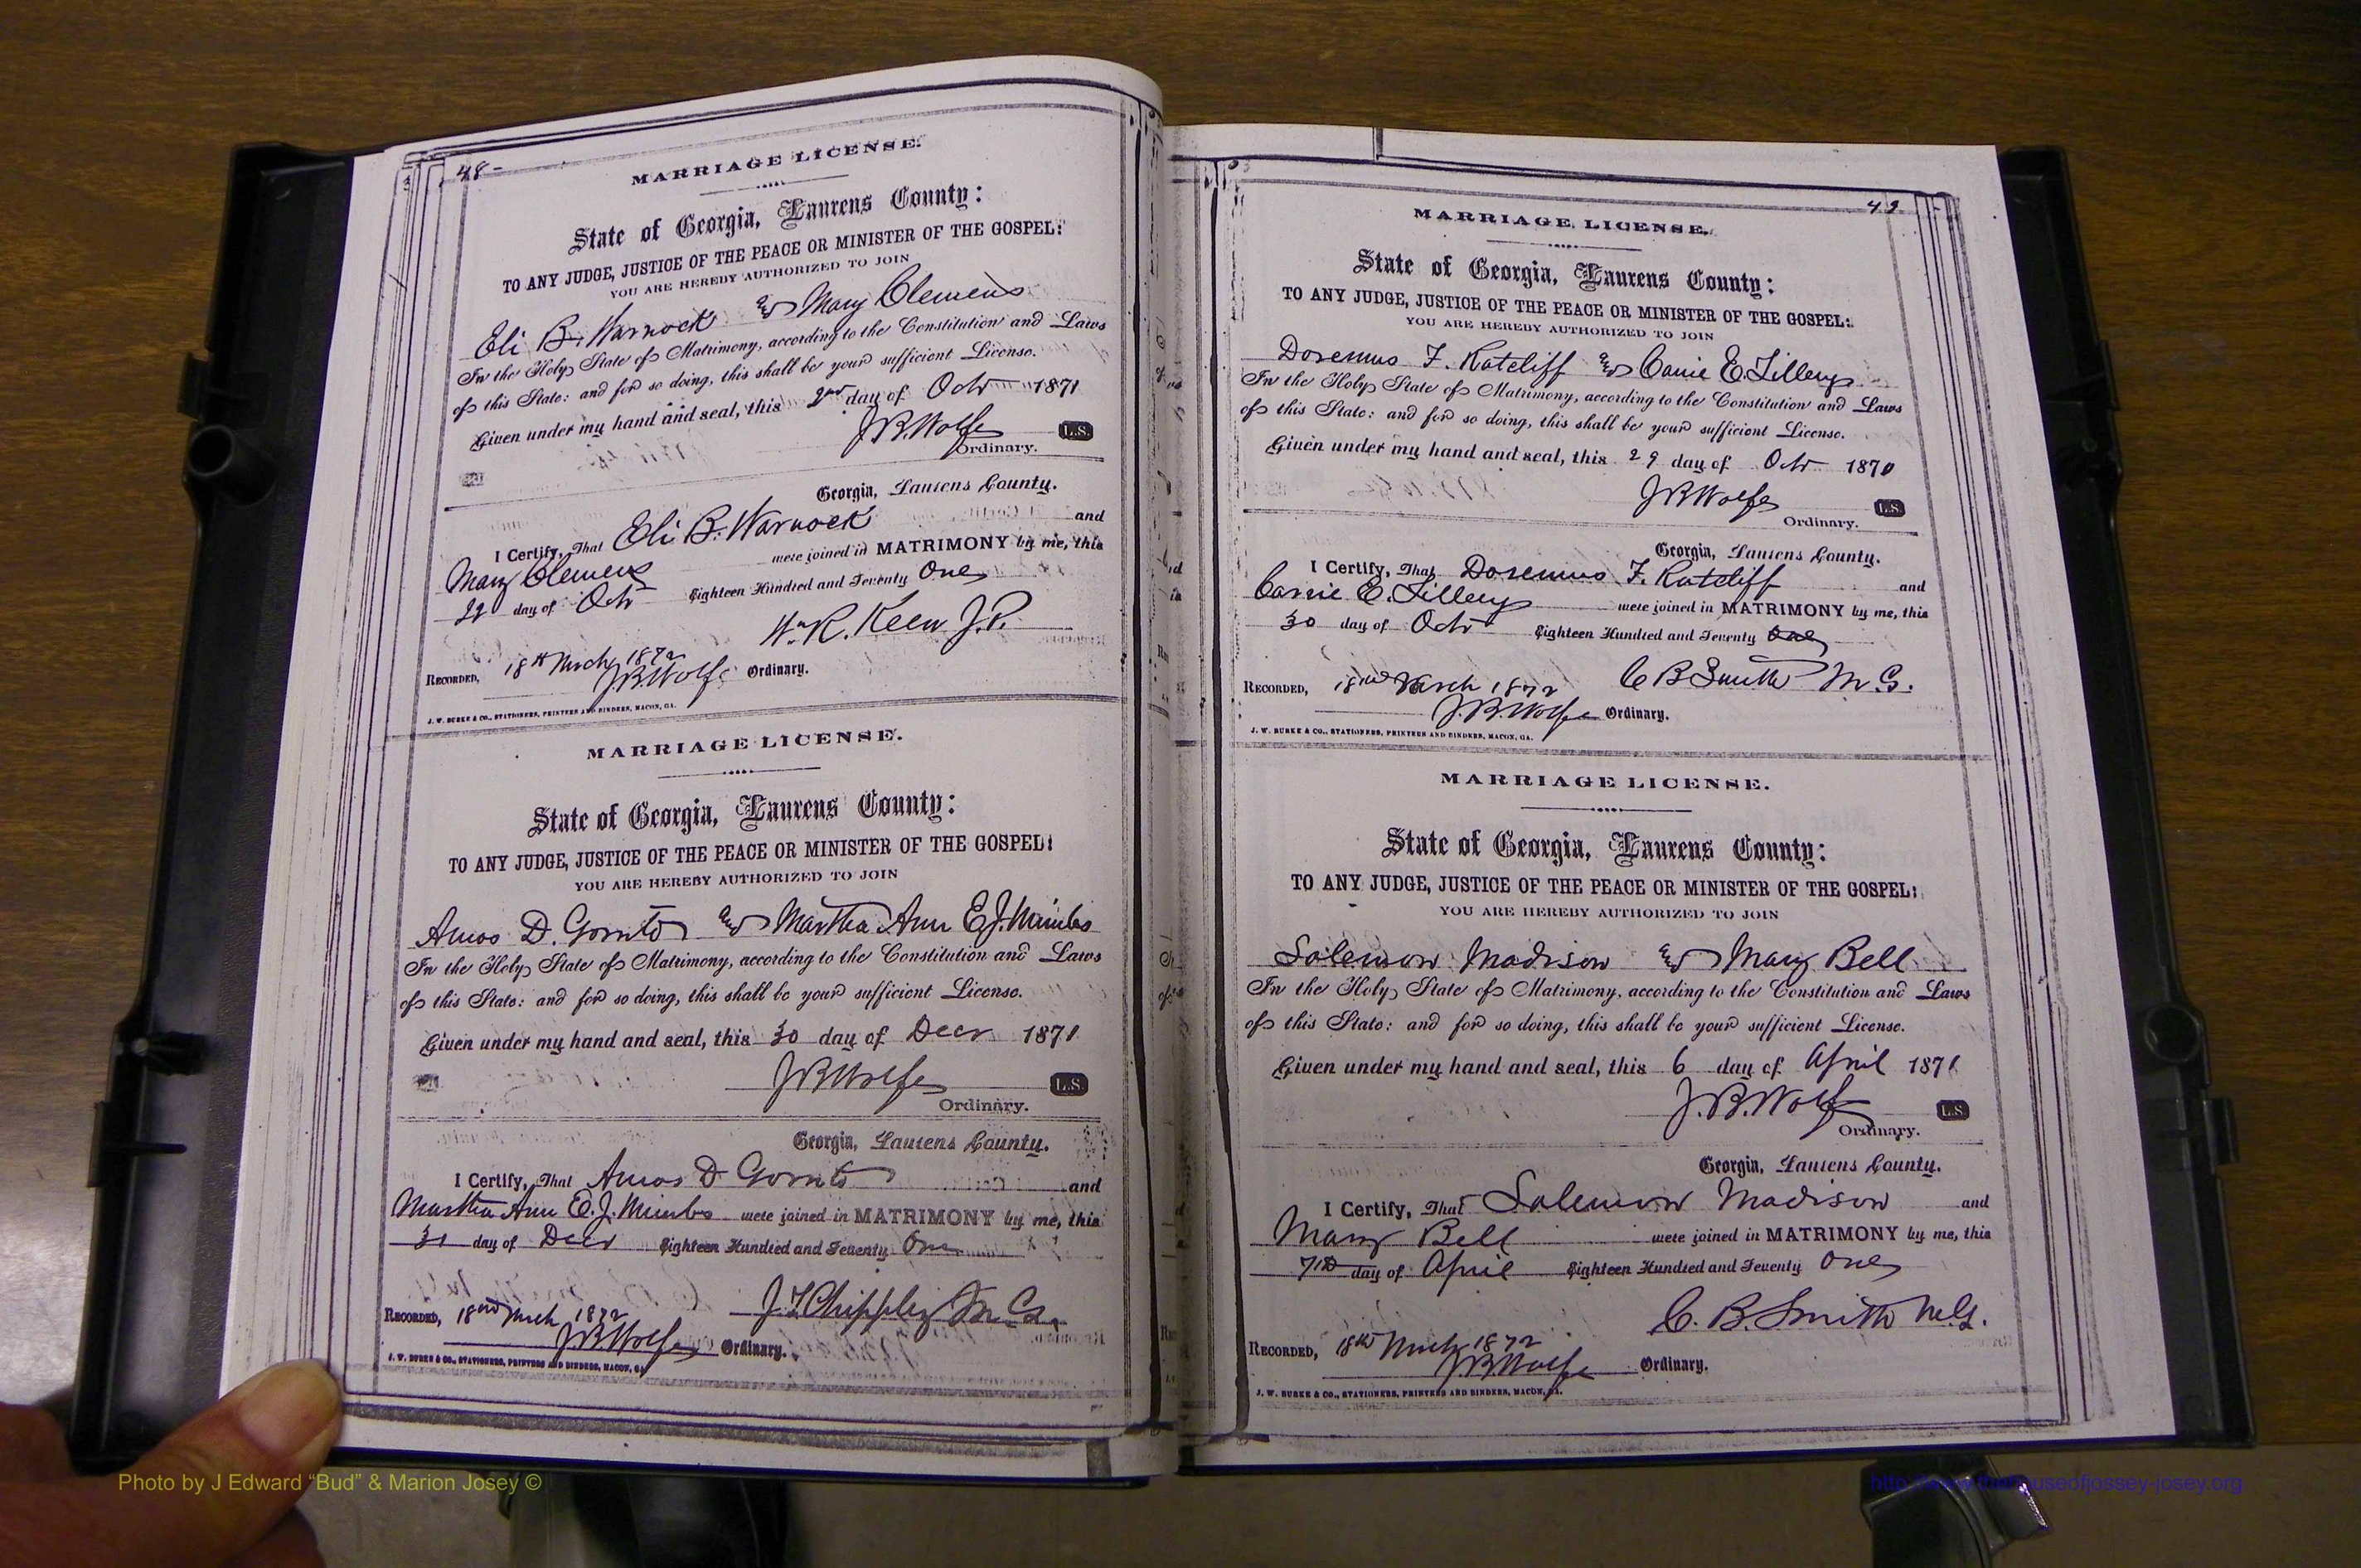 48-
MARRIAGE LICENSE.
State of Georgia, Laurens County:
TO ANY JUDGE, JUSTICE OF THE PEACE OR MINISTER OF THE GOSPEL:
YOU ARE HEREBY AUTHORIZED TO JOIN
Eli B. Warnock & Mary Clemens
In the Holy State of Matrimony, according to the Constitution and Laws
of this State: and for so doing, this shall be your sufficient License.
Given under my hand and seal, this 2nd day of Octr 1871
J.B. Wolfe L.S.
Ordinary.
Georgia, Laurens County.
I Certify, That Eli B. Warnock and
Mary Clemens were joined in MATRIMONY by me, this
22 day of Octr Eighteen Hundred and Seventy One
Wm R. Keen J.P.
RECORDED, 18th March 1872
J.B. Wolfe Ordinary.
J. W. BURKE & CO., STATIONERS, PRINTERS AND BINDERS, MACON, GA.
MARRIAGE LICENSE.
State of Georgia, Laurens County:
TO ANY JUDGE, JUSTICE OF THE PEACE OR MINISTER OF THE GOSPEL:
YOU ARE HEREBY AUTHORIZED TO JOIN
Amos D. Gornto & Martha Ann E.J. Mimbs
In the Holy State of Matrimony, according to the Constitution and Laws
of this State: and for so doing, this shall be your sufficient License.
Given under my hand and seal, this 30 day of Decr 1871
J B Wolfe L.S.
Ordinary.
Georgia, Laurens County.
I Certify, That Amos D Gornto and
Martha Ann E.J. Mimbs were joined in MATRIMONY by me, this
31 day of Decr Eighteen Hundred and Seventy One
J.T. Chippley M.G.
RECORDED, 18nd Mrch 1872
J.B. Wolfe Ordinary.
J. W. BURKE & CO., STATIONERS, PRINTERS AND BINDERS, MACON, GA
49
MARRIAGE LICENSE.
State of Georgia, Laurens County:
TO ANY JUDGE, JUSTICE OF THE PEACE OR MINISTER OF THE GOSPEL:
YOU ARE HEREBY AUTHORIZED TO JOIN
Doremus F. Ratcliff & Carrie E. Tillery
In the Holy State of Matrimony, according to the Constitution and Laws
of this State: and for so doing, this shall be your sufficient License.
Given under my hand and seal, this 29 day of Octr 1870
J B Wolfe L.S.
Ordinary.
Georgia, Laurens County.
I Certify, That Doremus F. Ratcliff and
Carrie E. Tillery were joined in MATRIMONY by me, this
30 day of Octr Eighteen Hundred and Seventy
C B Smith M.G.
RECORDED, 18nd March 1872
J.B. Wolfe Ordinary.
J. W. BURKE & CO., STATIONERS, PRINTERS AND BINDERS, MACON, GA.
MARRIAGE LICENSE.
State of Georgia, Laurens County:
TO ANY JUDGE, JUSTICE OF THE PEACE OR MINISTER OF THE GOSPEL:
YOU ARE HEREBY AUTHORIZED TO JOIN
Solemon Madison & Mary Bell
In the Holy State of Matrimony, according to the Constitution and Laws
of this State: and for so doing, this shall be your sufficient License.
Given under my hand and seal, this 6 day of April 1871
J.B. Wolfe L.S.
Ordinary.
Georgia, Laurens County.
I Certify, That Solemon Madison and
Mary Bell were joined in MATRIMONY by me, this
7th day of April Eighteen Hundred and Seventy One
C. B. Smith M.G.
RECORDED, 18th Mrch 1872
J.B. Wolfe Ordinary.
J. W. BURKE & CO., STATIONERS, PRINTERS AND BINDERS, MACON, GA.
Photo by J Edward “Bud” & Marion Josey ©
http://www.thehouseofjossey-josey.org